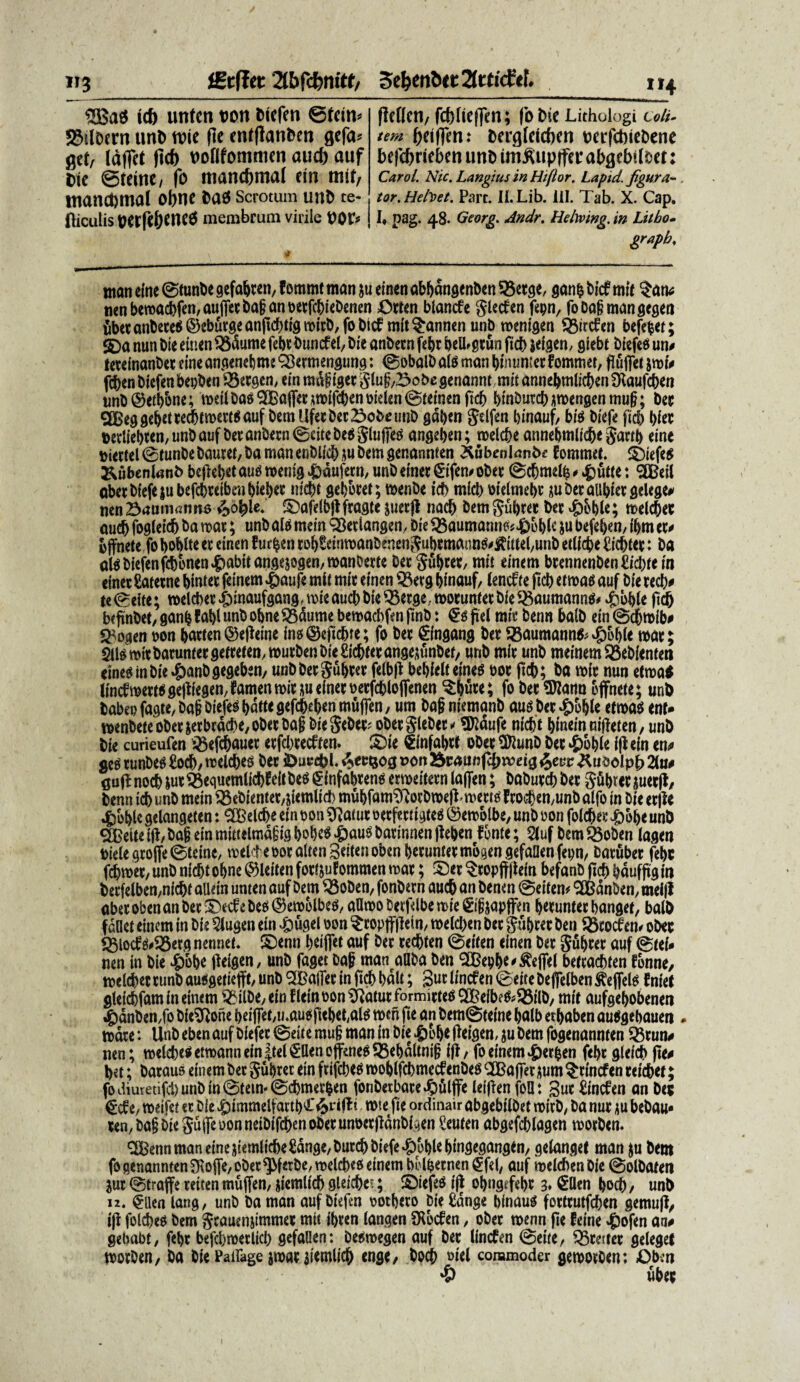 113 Erster Abschnitt, Zehender Artickel. 114
Was ich unten von diesen Stein-
Bildern und wie sie entstanden gesa-
get, lässet sich vollkommen auch auf
die Steine, so manchmal ein mit,
manchmal ohne das Scrotum und te-
sticulis versehenes membrum virile vor-
stellen, schliessen; so die Lithologi coli-
tem heissen: dergleichen verschiedene
beschrieben und im Kupffer abgebildet:
Carol. Nic. Langius in Histor. Lapid. figura-
tor. Helvet. Part. II. Lib. III. Tab. X. Cap.
I. pag. 48. Georg. Andr. Helwing. in Litho-
graph.
man eine Stunde gefahren, kommt man zu einen abhängenden Berge, gantz dick mit Tan-
nen bewachsen, ausser daß an verschiedenen Orten blancke Flecken seyn, so daß man gegen
über anderes Gebürge ansichtig wird, so dick mit Tannen und wenigen Bircken besetzet;
Da nun die einen Bäume sehr dunckel, die andern sehr hell-grün sich zeigen, giebt dieses un-
tereinander eine angenehme Vermengung: Sobald als man hinunter kommet, flüsset zwi-
schen diesen beyden Bergen, ein mäßiger Fluß, Bode genannt mit annehmlichen Rauschen
und Gethöne; weil das Wasser zwischen vielen Steinen sich hindurch zwengen muß; der
Weg gehet rechtwerts auf dem Ufer der Bode und gähen Felsen hinauf, bis diese sich hier
verliehren, und auf der andern Seite des Flusses angehen; welche annehmliche Farth eine
viertel Stunde dauret, da man endlich zu dem genannten Rübenlande kommet. Dieses
Rübenland bestehet aus wenig Häusern, und einer Eisen- oder Schmeltz-Hütte: Weil
aber diese zu beschreiben hieher nicht gehöret; wende ich mich vielmehr zu der allhier gelege-
nen Baumanns-Höhle. Daselbst fragte zuerst nach dem Führer der Höhle; welcher
auch sogleich da war; und als mein Verlangen, die Baumanns-Höhle zu besehen, ihm er-
öffnete so hohlte er einen kurtzen roh Leinwandenen Fuhrmanns-Kittel, und etliche Lichter: da
als diesen schönen Habit angezogen, wanderte der Führer, mit einem brennenden Lichte in
einer Laterne hinter seinem Hause mit mir einen Berg hinauf, lenckte sich etwas auf die rech-
te Seite; welcher Hinaufgang, wie auch die Berge, worunter die Baumanns-Höhle sich
befindet, gantz kahl und ohne Bäume bewachsen sind: Es fiel mir denn bald ein Schwib-
Bogen von harten Gesteine ins Gesichte; so der Eingang der Baumanns-Höhle war;
Als wir darunter getreten, wurden die Lichter angezündet, und mir und meinem Bedienten
eines in die Hand gegeben, und der Führer selbst behielt eines vor sich; da wir nun etwas
linckwerts gestiegen, kamen wir zu einer verschlossenen Thüre; so der Mann öffnete; und
dabey sagte, daß dieses hätte geschehen müssen, um daß niemand aus der Höhle etwas ent-
wendete oder zerbräche, oder daß die Feder- oder Fleder-Mäuse nicht hinein nisteten, und
die curieusen Beschauer erschreckten. Die Einfahrt oder Mund der Höhle ist ein en-
ges rundes Loch, welches der Durchl. Hertzog von Braunschweig Herr Rudolph Au-
gust noch zur Bequemlichkeit des Einfahrens erweitern lassen; dadurch der Führer zuerst,
denn ich und mein Bedienter, ziemlich mühsam Nordwest-werts krochen, und also in die erste
Höhle gelangeten: Welche ein von Natur verfertigtes Gewölbe, und von solcher Höhe und
Weite ist, daß ein mittelmäßig hohes Haus darinnen stehen könte; Auf dem Boden lagen
viele grosse Steine, welche vor alten Zeiten oben herunter mögen gefallen seyn, darüber sehr
schwer, und nicht ohne Gleiten fortzukommen war; Der Tropffstein befand sich häuffig in
derselben, nicht allein unten auf dem Boden, sondern auch an denen Seiten-Wänden, meist
aber oben an der Decke des Gewölbes, allwo derselbe wie Eißzapffen herunter hanget, bald
fället einem in die Augen ein Hügel von Tropffstein, welchen der Führer den Brocken- oder
Blocks-Berg nennet. Denn heisset auf der rechten Seiten einen der Führer auf Stei-
nen in die Höhe steigen, und saget daß man allda den Weyhe-Kessel betrachten könne,
welcher rund ausgetiefft, und Wasser in sich hält; Zur lincken Seite desselben Kessels kniet
gleichsam in einem Bilde, ein klein von Natur formirtes Weibes-Bild, mit aufgehobenen
Händen, so die Nonne heisset, u. aus siehet, als wen sie an dem Steine halb erhaben ausgehauen
wäre: Und eben auf dieser Seite muß man in die Höhe steigen, zu dem sogenannten Brun-
nen; welches etwann ein ¼tel Ellen offenes Behältniß ist, so einem Hertzen sehr gleich sie-
het; daraus einem der Führer ein frisches wohlschmeckendes Wasser zum Trincken reichet;
so diuretisch und in Stein-Schmertzen sonderbare Hülffe leisten soll: Zur Lincken an der
Ecke, weiset er die Himmelfarth Christi wie sie ordinair abgebildet wird, da nur zu bedau-
ren, daß die Füsse von neidischen oder unverständigen Leuten abgeschlagen worden.
Wenn man eine ziemliche Länge, durch diese Höhle hingegangen, gelanget man zu dem
so genannten Rosse, oder Pferde, welches einem höltzernen Esel, auf welchen die Soldaten
zur Straffe reiten müssen, ziemlich gleichet; Dieses ist ohngefehr 3. Ellen hoch, und
12. Ellen lang, und da man auf diesen vorhero die Länge hinaus fortrutschen gemust,
ist solches dem Frauenzimmer mit ihren langen Röcken, oder wenn sie keine Hosen an-
gehabt, sehr beschwerlich gefallen: deswegen auf der lincken Seite, Bretter geleget
worden, da die Passage zwar ziemlich enge, doch viel commoder geworden: Oben
H über